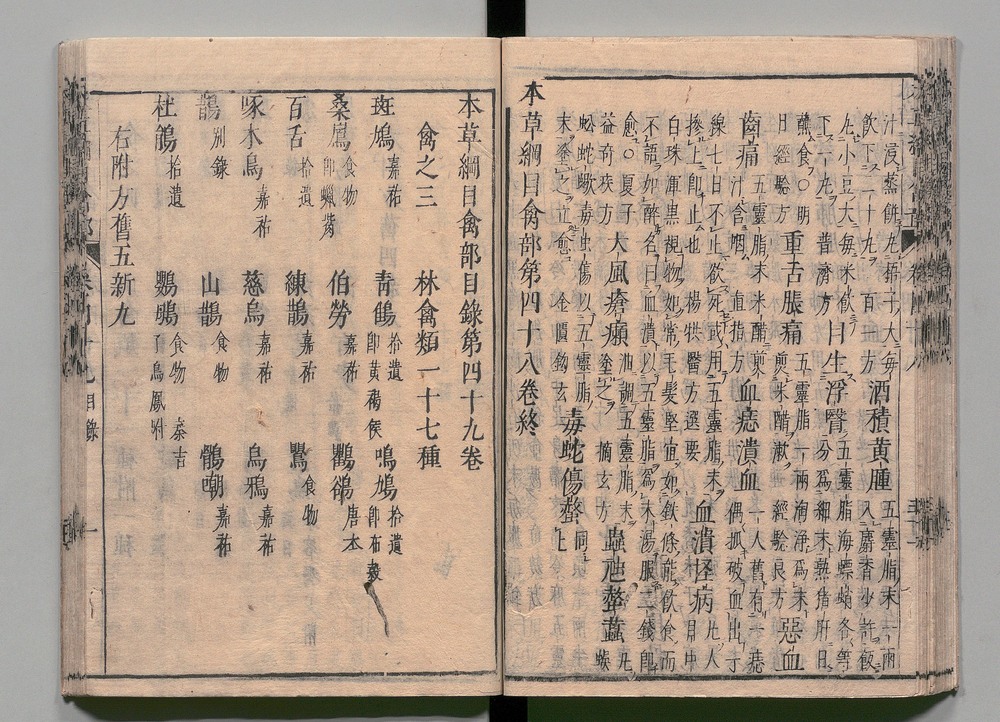 汁浸蒸餅丸梧子大每
飲下二十丸 百一方 酒積黃腫 五靈脂末一兩
入麝香少許飯
丸小豆大每米飲
下一丸 普濟方 目生浮瞖 五靈脂海螵蛸各等
分爲細末熟猪肝日
蘸食○明
目經驗方 重舌脹痛 五靈脂一兩淘淨爲末
煎米醋漱 經驗良方 惡血
齒痛 五靈脂末米醋煎
汁含咽 直指方 血痣潰血 一人舊有一痣
偶抓破血出
線七日不止欲死或用五靈脂末
摻上即止也 楊拱醫方選要 血潰怪病 凡人
目中
白珠渾黑視物如常毛髮堅直如鉄條能飲食而
不語如醉名曰血潰以五靈脂爲末湯服二錢即
愈○夏子
益奇疾方 大風瘡癩 油調五靈脂末
塗之 摘玄方 蟲虺螫蠚 凡
蜈
蚣蛇蠍毒虫傷以五靈脂
末塗之立愈 金匱鈎玄 毒蛇傷螫 同上
本草綱目禽部第四十八卷終
本草綱目禽部目錄第四十九卷
禽之三 林禽類一十七種
斑鳩 嘉祐 青鵻 拾遺 即黃褐侯 鳴鳩 拾遺 即布穀
桑鳸 食物 即蠟觜 伯勞 嘉祐 鸜鵒 唐本
百舌 拾遺 練鵲 嘉祐 鶯 食物
啄木鳥 嘉祐 慈烏 嘉祐 烏鴉 嘉祐
鵲 別錄 山鵲 食物 鶻嘲 嘉祐
杜鵑 拾遺 鸚䳇 食物 秦吉了鳥鳳附
右附方舊五新九